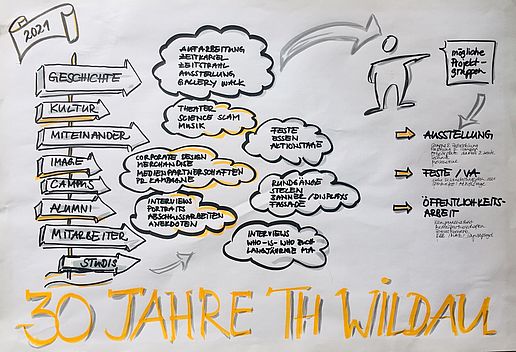 2021
GESCHICHTE
KULTUR
MITEINANDER
IMAGE
CAMPUS
ALUMNI
MITARBEITER
STUDIS
AUFARBEITUNG
ZEITKAPSEL
ZEITSTRAHL
AUSSTELLUNG
GALLERY WALK
THEATER
SCIENCE SLAM
MUSIK
FESTE
ESSEN
AKTIONSTAGE
CORPORATE DESIGN
MERCHANDISE
MEDIENPARTNERSCHAFTEN
PR KAMPAGNE
RUNDGÄNGE
STELEN
BANNER / DISPLAYS
FASSADE
INTERVIEWS
PORTRAITS
ABSCHLUSSARBEITEN
ANEKDOTEN
INTERVIEWS
WHO-IS-WHO BUCH
LANGJÄHRIGE MA
mögliche
Projekt-
gruppen
AUSSTELLUNG
FESTE / VA
ÖFFENTLICHKEITS-
ARBEIT
30 JAHRE TH WILDAU